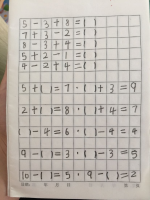 5-3+8=( )
7+3-2=( )
8-3+4=( )
5+2-1=( )
4-2+4=( )
5+( )=7·( )+3=9
2+( )=8·( )+4=7
( )-4=6·( )-4=4
9-( )=3·( )-3=5
10-( )=5·9-( )=2